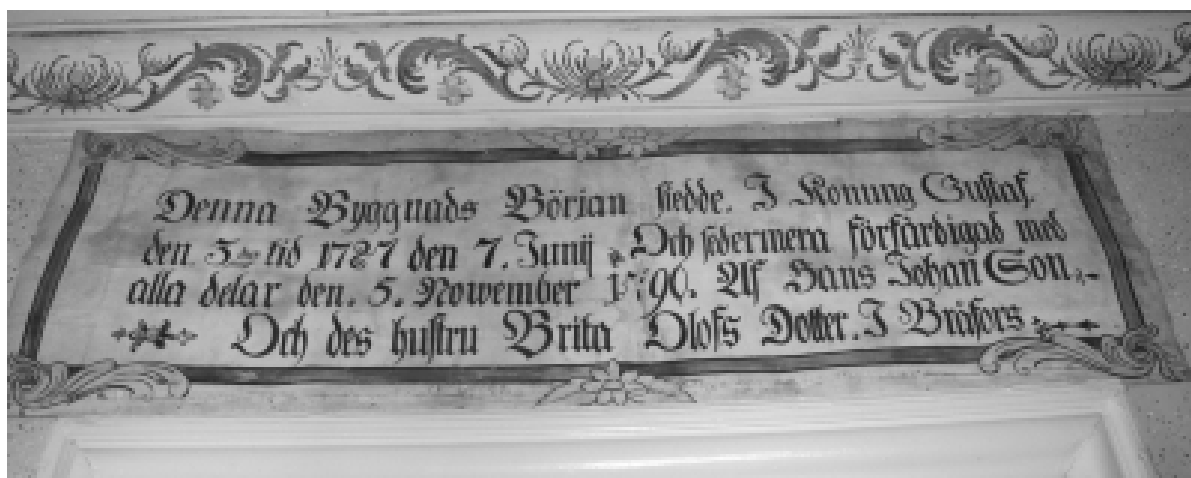 Denna Byggnads Börian skedde. I Konung Gustaf.
den 3 tid 1787 den 7. Junij Och sedermera förfärdigad med
alla delar den. 5. November 1790. Af Hans Johan Son
Och des hustru Brita Olofs Dotter. I Bräfors